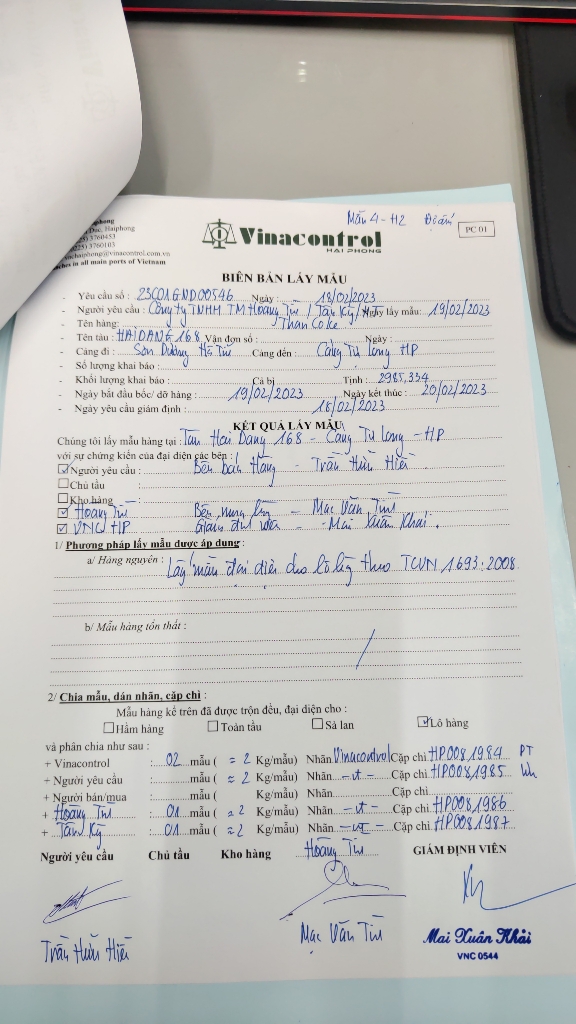 Mẫu 4-H2 Độ ẩm
PC 01
Haiphong
Duc, Haiphong
25) 3760453
225) 3760103
vnchaiphong@vinacontrol.com.vn
in all main ports of Vietnam
Vinacontrol
HAI PHONG
BIÊN BẢN LẤY MẪU
- Yêu cầu số : 23C01GND00546 Ngày : 18/02/2023
- Người yêu cầu : Công ty TNHH TM Hoàng Tú / Tân Kỳ Ngày lấy mẫu: 19/02/2023
- Tên hàng: Than Coke
- Tên tàu : HẢI ĐĂNG 168 Vận đơn số : Ngày :
- Cảng đi : Sơn Dương Hà Tĩnh Cảng đến : Cảng Tự Long HP
- Số lượng khai báo :
- Khối lượng khai báo : Cả bì Tịnh : 2985,334
- Ngày bắt đầu bốc/ dỡ hàng : 19/02/2023 Ngày kết thúc : 20/02/2023
- Ngày yêu cầu giám định : 18/02/2023
KẾT QUẢ LẤY MẪU
Chúng tôi lấy mẫu hàng tại : Tàu Hải Đăng 168 - Cảng Tự Long - HP
với sự chứng kiến của đại diện các bên :
☑Người yêu cầu : Bên bán Hàng - Trần Hữu Hiền
☐Chủ tàu :
☐Kho hàng :
☑ Hoàng Tú Bên - Mạc Văn
☑ VNC HP Giám định viên - Mai Xuân Khải.
1/ Phương pháp lấy mẫu được áp dụng :
a/ Hàng nguyên : Lấy mẫu đại diện cho lô hàng theo TCVN 1693:2008
b/ Mẫu hàng tổn thất : /
2/ Chia mẫu, dán nhãn, cặp chì :
Mẫu hàng kể trên đã được trộn đều, đại diện cho :
☐Hầm hàng ☐Toàn tầu ☐Sà lan ☑Lô hàng
và phân chia như sau :
+ Vinacontrol : 02 mẫu ( ≈ 2 Kg/mẫu) Nhãn Vinacontrol Cặp chì HP0081984 PT
+ Người yêu cầu : mẫu ( ≈ 2 Kg/mẫu) Nhãn -nt- Cặp chì HP0081985
+ Người bán/mua : mẫu ( Kg/mẫu) Nhãn Cặp chì
+ Hoàng Tú : 01 mẫu ( ≈2 Kg/mẫu) Nhãn -nt- Cặp chì HP0081986
+ Tân Kỳ : 01 mẫu ( ≈2 Kg/mẫu) Nhãn -nt- Cặp chì HP0081987
Người yêu cầu Chủ tầu Kho hàng Hoàng Tú GIÁM ĐỊNH VIÊN
Trần Hữu Hiền Mạc Văn Mai Xuân Khải
VNC 0544